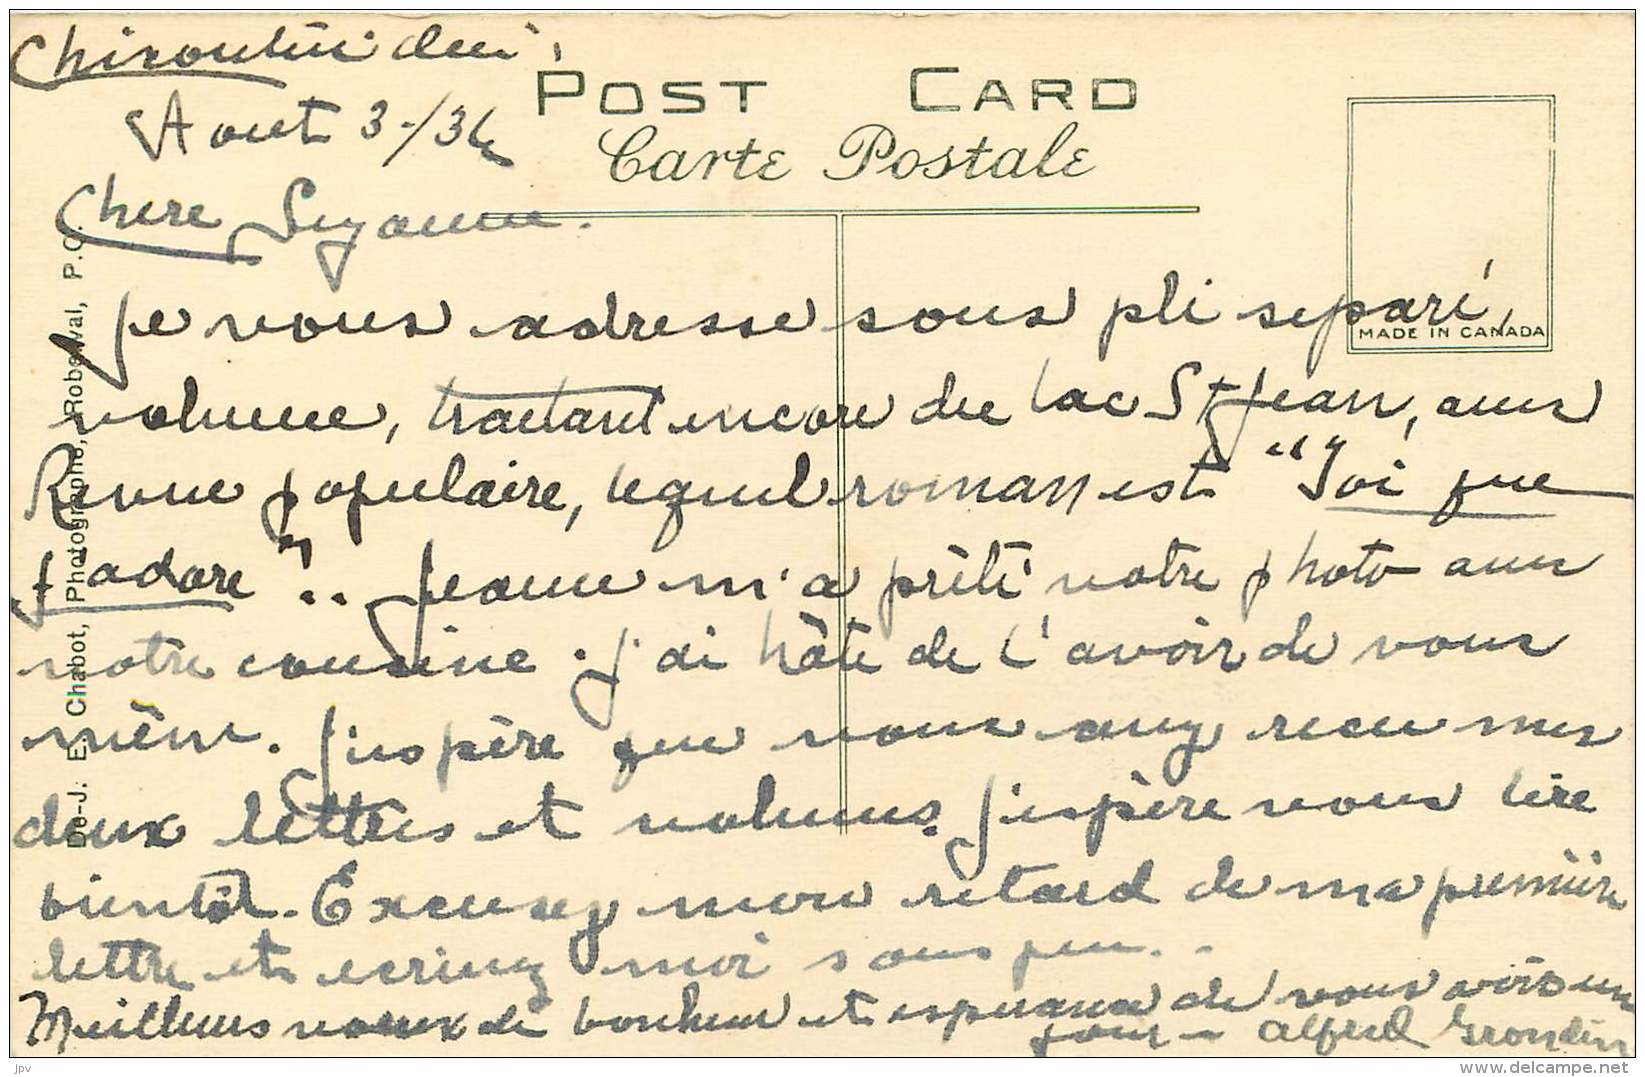 Chicoutimi
Aout 3./34
POST CARD
Carte Postale
Chere Suzanne.
MADE IN CANADA
De-J. E. Chabot, Photographe, Roberval, P.Q.
Je vous adresse sous pli separé,
volume, traitant encore du Lac St Jean, aussi
Revue populaire, lequel roman est "Toi que
j'adore".. Jeanne m'a prêté votre photo avec
votre cousine. j'ai hâte de l'avoir de vous
même. J'espère que vous avez recu mes
deux lettres et volumes. J'espère vous lire
bientôt. Excusez mon retard de ma premiière
lettre et ecrivez moi sous peu..
Meilleurs voeux de bonheur et esperance de vous voir un
jour - Alfred Grondin
jpv
www.delcampe.net